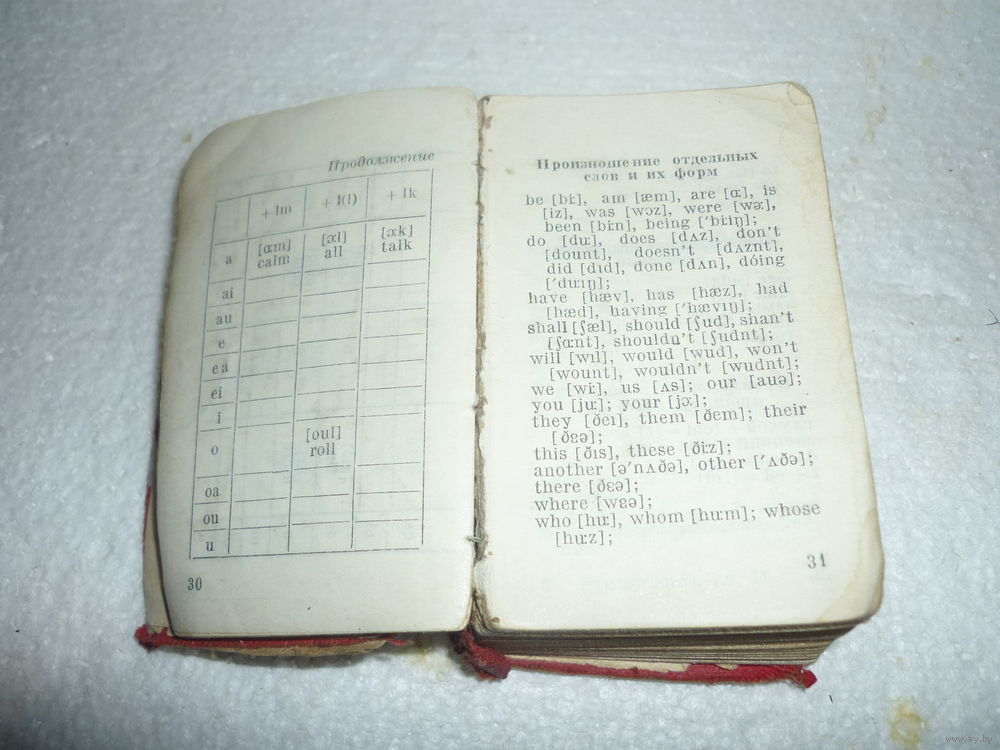 Продолжение
+ lm + l(l) + lk
a [ɑ:m] calm [ɔ:l] all [ɔ:k] talk
ai
au
e
ea
ei
i
o [oul] roll
oa
ou
u
30
Произношение отдельных
слов и их форм
be [bi:], am [æm], are [ɑ:], is
[iz], was [wɔz], were [wə:],
been [bi:n], being ['bi:ıŋ];
do [du:], does [dʌz], don't
[dount], doesn't [dʌznt],
did [dıd], done [dʌn], dóing
['du:ıŋ];
have [hæv], has [hæz], had
[hæd], having ['hævıŋ];
shall [ʃæl], should [ʃud], shan't
[ʃɑ:nt], shouldn't [ʃudnt];
will [wıl], would [wud], won't
[wount], wouldn't [wudnt];
we [wi:], us [ʌs]; our [auə];
you [ju:]; your [jɔ:];
they [ðeı], them [ðem]; their
[ðɛə];
this [ðıs], these [ði:z];
another [ə'nʌðə], other ['ʌðə];
there [ðɛə];
where [wɛə];
who [hu:], whom [hu:m]; whose
[hu:z];
31
www.ay.by